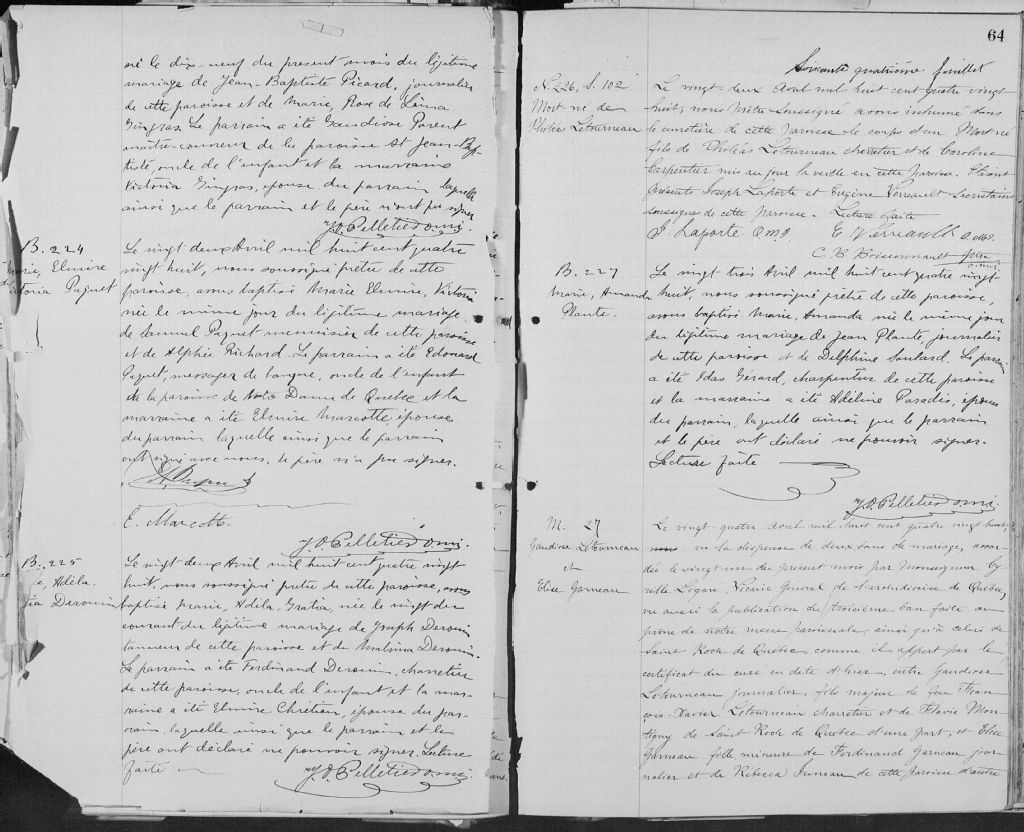 né le dix-neuf du present mois du légitime
mariage de Jean-Baptiste Picard, journalier
de cette paroisse et de Marie, Rose de Lima
Gingras. Le parrain a été Gaudiose Parent
maître-couvreur de la paroisse St Jean-Bap-
tiste, oncle de l'enfant et la marraine
Victoria Gingras, épouse du parrain laquelle
ainsi que le parrain et le père n'ont pu signer.
J. O. Pelletier o.m.i.
B. 224
Marie, Elmire
Victoria Paquet
Le vingt deux Avril mil huit cent quatre
vingt huit, nous soussigné prêtre de cette
paroisse, avons baptisé Marie Elmire, Victoria
née le même jour du légitime mariage
de Samuel Paquet menuisier de cette paroisse
et de Alphée Richard. Le parrain a été Edouard
Paquet, messager de banque, oncle de l'enfant
de la paroisse de Notre Dame de Quebec et la
marraine a été Elmire Marcotte, épouse
du parrain laquelle ainsi que le parrain
ont signé avec nous, le père n'a pu signer.
E. Marcotte
J. O. Pelletier o.m.i.
B. 225
Adéla,
Derouin
Le vingt deux Avril mil huit cent quatre vingt
huit, nous soussigné pretre de cette paroisse, avons
baptisé Marie, Adéla, Gratia, née le vingt du
courant du légitime mariage de Joseph Derouin
tanneur de cette paroisse et de Malvina Derouin.
Le parrain a été Ferdinand Derouin, charretier
de cette paroisse, oncle de l'enfant et la mar-
raine a été Elmire Chrétien, épouse du par-
rain, laquelle ainsi que le parrain et le
père ont déclaré ne pouvoir signer. Lecture
faite
J. O. Pelletier o.m.i.
64
Soixante quatrième feuillet
N. 226, S. 102
Mort né de
Philéas Letourneau
Le vingt-deux Avril mil huit cent quatre vingt
huit, nous Prêtre Soussigné avons inhumé dans
le cimetière de cette Paroisse le corps d'un Mort né
fils de Philéas Letourneau charretier et de Caroline
Carpentier mis au jour la veille en cette paroisse. Etaient
présents Joseph Laporte et Eugène Verreault Sacristains
soussignés de cette Paroisse. Lecture faite
J. Laporte O.M.I E Verreault O.M.I.
C. B Boissonnault Ptre
o.m.i.
B. 227
Marie, Amanda
Plante.
Le vingt trois Avril mil huit cent quatre vingt
huit, nous soussigné prêtre de cette paroisse,
avons baptisé Marie, Amanda née le même jour
du légitime mariage de Jean Plante, journalier
de cette paroisse et de Delphine Soulard. Le parrain
a été Idas Gérard, charpentier de cette paroisse
et la marraine a été Adéline Paradis, épouse
du parrain, laquelle ainsi que le parrain
et le père ont déclaré ne pouvoir signer.
Lecture faite
J. O. Pelletier o.m.i.
M. 27
Gaudiose Letourneau
et
Elise Garneau
Le vingt quatre avril mil huit cent quatre vingt huit,
nous, vu la dispense de deux bans de mariage, accor-
dée le vingt-un du présent mois par Monseigneur Cy-
rille Légaré, Vicaire Général de l'archidiocèse de Quebec,
vu aussi la publication du troisième ban faite au
prône de notre messe paroissiale, ainsi qu'à celui de
Saint Roch de Québec comme il appert par le
certificat du curé en date d'hier, entre Gaudiose
Letourneau journalier, fils majeur de feu Fran-
çois-Xavier Letourneau charretier et de Flavie Mon-
tigny de Saint Roch de Québec d'une part, et Elise
Garneau fille mineure de Ferdinand Garneau jour-
nalier et de Rébecca Juneau de cette paroisse d'autre